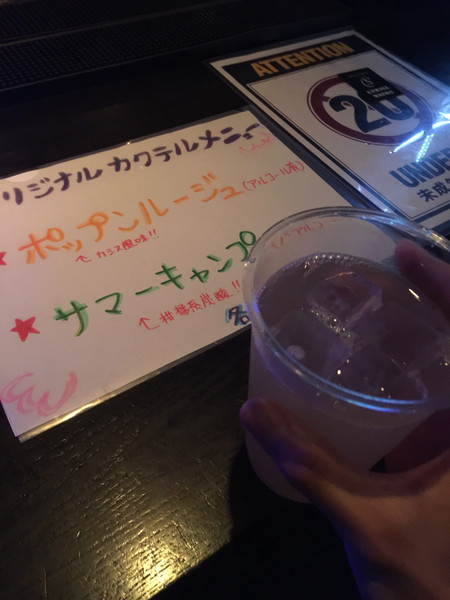 リジナル カクテルメニュ
★ ポップンルージュ(アルコール有)
↑カシス風味!!
★ サマーキャンプ (ノンアル)
↑柑橘系炭酸!!
各
ATTENTION
20
UNDE
未成